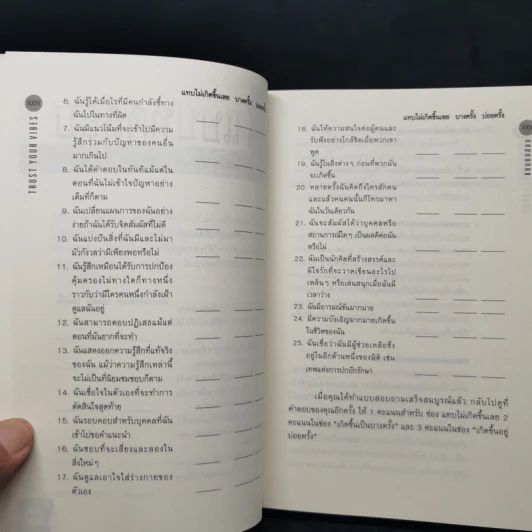 XXIV
TRUST YOUR VIBES
แทบไม่เกิดขึ้นเลย บางครั้ง บ่อยครั้ง
6. ฉันรู้ได้เมื่อไรที่มีคนกำลังชี้ทาง
ฉันไปในทางที่ผิด
7. ฉันมีแนวโน้มที่จะเข้าไปมีความ
รู้สึกร่วมกับปัญหาของคนอื่น
มากเกินไป
8. ฉันได้คำตอบในทันทีแม้แต่ใน
ตอนที่ฉันไม่เข้าใจปัญหาอย่าง
เต็มที่ก็ตาม
9. ฉันเปลี่ยนแผนการของฉันอย่าง
ง่ายถ้าฉันได้รับจิตสัมผัสที่ไม่ดี
10. ฉันแบ่งปันสิ่งที่ฉันมีและไม่มา
มัวกังวลว่ามีเพียงพอหรือไม่
11. ฉันรู้สึกเหมือนได้รับการปกป้อง
คุ้มครองไม่ทางใดก็ทางหนึ่ง
ราวกับว่ามีใครคนหนึ่งกำลังเฝ้า
ดูแลฉันอยู่
12. ฉันสามารถตอบปฏิเสธแม้แต่
ตอนที่มันยากที่จะทำ
13. ฉันแสดงออกความรู้สึกที่แท้จริง
ของฉัน แม้ว่าความรู้สึกเหล่านี้
จะไม่เป็นที่นิยมชมชอบก็ตาม
14. ฉันเชื่อใจในตัวเองที่จะทำการ
ตัดสินใจสุดท้าย
15. ฉันรอบคอบสำหรับบุคคลที่ฉัน
เข้าไปขอคำแนะนำ
16. ฉันชอบที่จะเสี่ยงและลองใน
สิ่งใหม่ๆ
17. ฉันดูแลเอาใจใส่ร่างกายของ
ตัวเอง
แทบไม่เกิดขึ้นเลย บางครั้ง บ่อยครั้ง
18. ฉันให้ความสนใจต่อผู้คนและ
รับฟังอย่างใกล้ชิดเมื่อพวกเขา
พูด
19. ฉันรู้ในสิ่งต่างๆ ก่อนที่พวกมัน
จะเกิดขึ้น
20. หลายครั้งฉันคิดถึงใครสักคน
และแล้วคนคนนั้นก็โทรมาหา
ฉันในวันเดียวกัน
21. ฉันจะสัมผัสได้ว่าบุคคลหรือ
สถานการณ์ใดๆ เป็นผลดีต่อฉัน
หรือไม่
22. ฉันเป็นนักคิดที่สร้างสรรค์และ
มีใจรักที่จะวาดเขียนอะไรไป
เพลินๆ หรือเล่นสนุกเมื่อฉันมี
เวลาว่าง
23. ฉันมีอารมณ์ขันมากมาย
24. มีความบังเอิญมากมายเกิดขึ้น
ในชีวิตของฉัน
25. ฉันเชื่อว่าฉันมีผู้ช่วยเหลือซึ่ง
อยู่ในอีกด้านหนึ่งของมิติ เช่น
เทพแห่งการปกปักรักษา
เมื่อคุณได้ทำแบบสอบถามเสร็จสมบูรณ์แล้ว กลับไปดูที่
คำตอบของคุณอีกครั้ง ให้ 1 คะแนนสำหรับ ช่อง แทบไม่เกิดขึ้นเลย 2
คะแนนในช่อง "เกิดขึ้นเป็นบางครั้ง" และ 3 คะแนนในช่อง "เกิดขึ้นอยู่
บ่อยครั้ง"